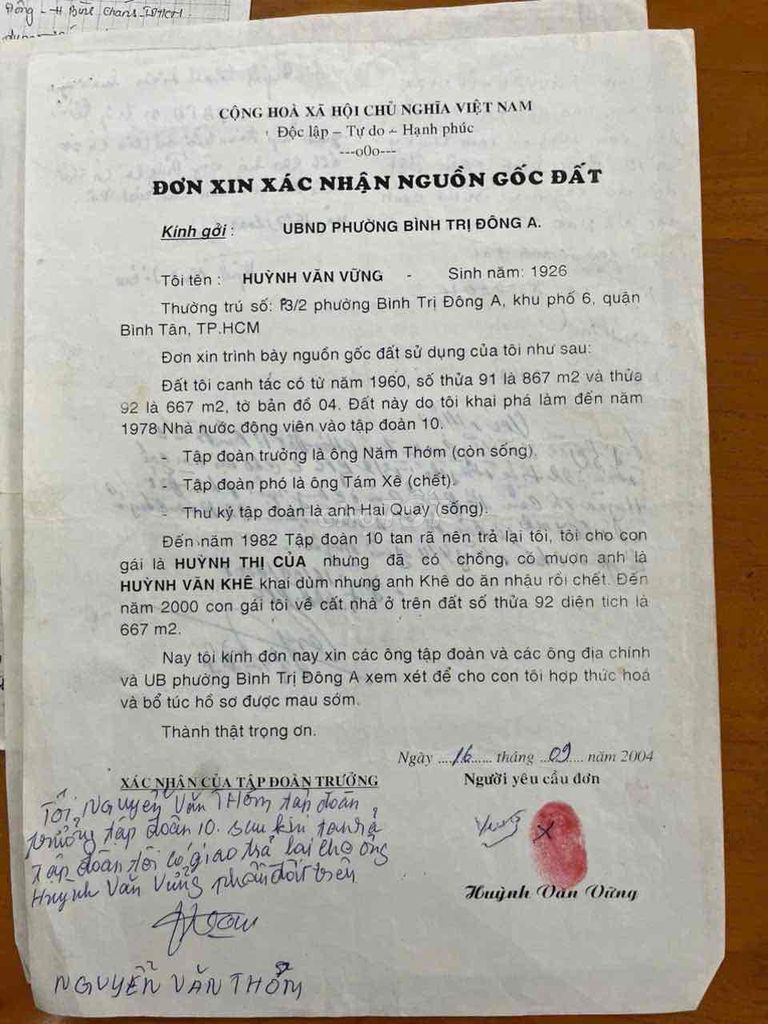 CỘNG HOÀ XÃ HỘI CHỦ NGHĨA VIỆT NAM
Độc lập – Tự do – Hạnh phúc
---o0o---
ĐƠN XIN XÁC NHẬN NGUỒN GỐC ĐẤT
Kính gởi : UBND PHƯỜNG BÌNH TRỊ ĐÔNG A.
Tôi tên : HUỲNH VĂN VỮNG - Sinh năm: 1926
Thường trú số: 3/2 phường Bình Trị Đông A, khu phố 6, quận
Bình Tân, TP.HCM
Đơn xin trình bày nguồn gốc đất sử dụng của tôi như sau:
Đất tôi canh tác có từ năm 1960, số thửa 91 là 867 m2 và thửa
92 là 667 m2, tờ bản đồ 04. Đất này do tôi khai phá làm đến năm
1978 Nhà nước động viên vào tập đoàn 10.
- Tập đoàn trưởng là ông Năm Thớm (còn sống).
- Tập đoàn phó là ông Tám Xê (chết).
- Thư ký tập đoàn là anh Hai Quay (sống).
Đến năm 1982 Tập đoàn 10 tan rã nên trả lại tôi, tôi cho con
gái là HUỲNH THỊ CỦA nhưng đã có chồng, có mượn anh là
HUỲNH VĂN KHÊ khai dùm nhưng anh Khê do ăn nhậu rồi chết. Đến
năm 2000 con gái tôi về cất nhà ở trên đất số thửa 92 diện tích là
667 m2.
Nay tôi kính đơn nay xin các ông tập đoàn và các ông địa chính
và UB phường Bình Trị Đông A xem xét để cho con tôi hợp thức hoá
và bổ túc hồ sơ được mau sớm.
Thành thật trọng ơn.
Ngày ....16...... tháng ..09.. năm 2004
XÁC NHẬN CỦA TẬP ĐOÀN TRƯỞNG
Người yêu cầu đơn
Tôi, Nguyễn Văn Thớm tập đoàn
trưởng tập đoàn 10. sau khi tan rả
tập đoàn tôi có giao trả lại cho ông
Huỳnh Văn Vững phần đất trên
Vững
Huỳnh Văn Vững
NGUYỄN VĂN THỚM